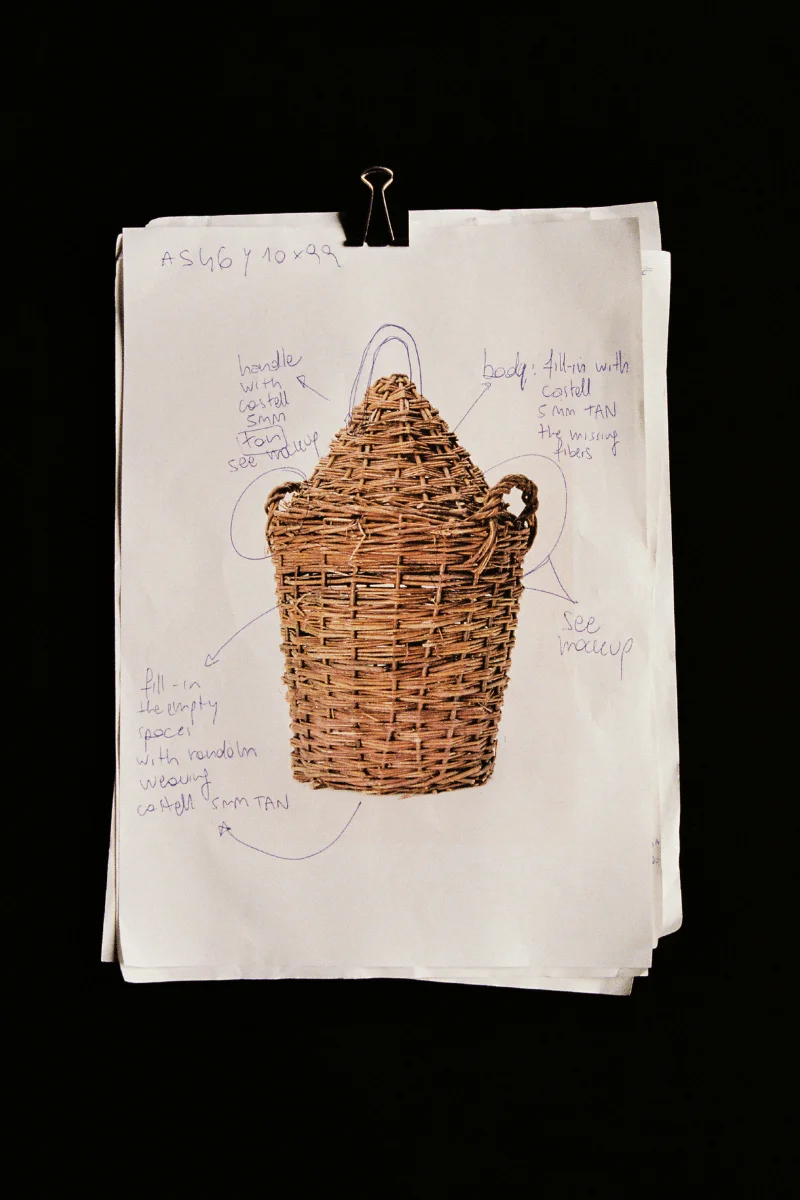 AS46 Y 10x99
handle
with
castell
5MM
tan
see mockup
body: fill-in with
castell
5 MM TAN
the missing
fibers
see
mockup
fill-in
the empty
spaces
with random
weaving
castell 5MM TAN